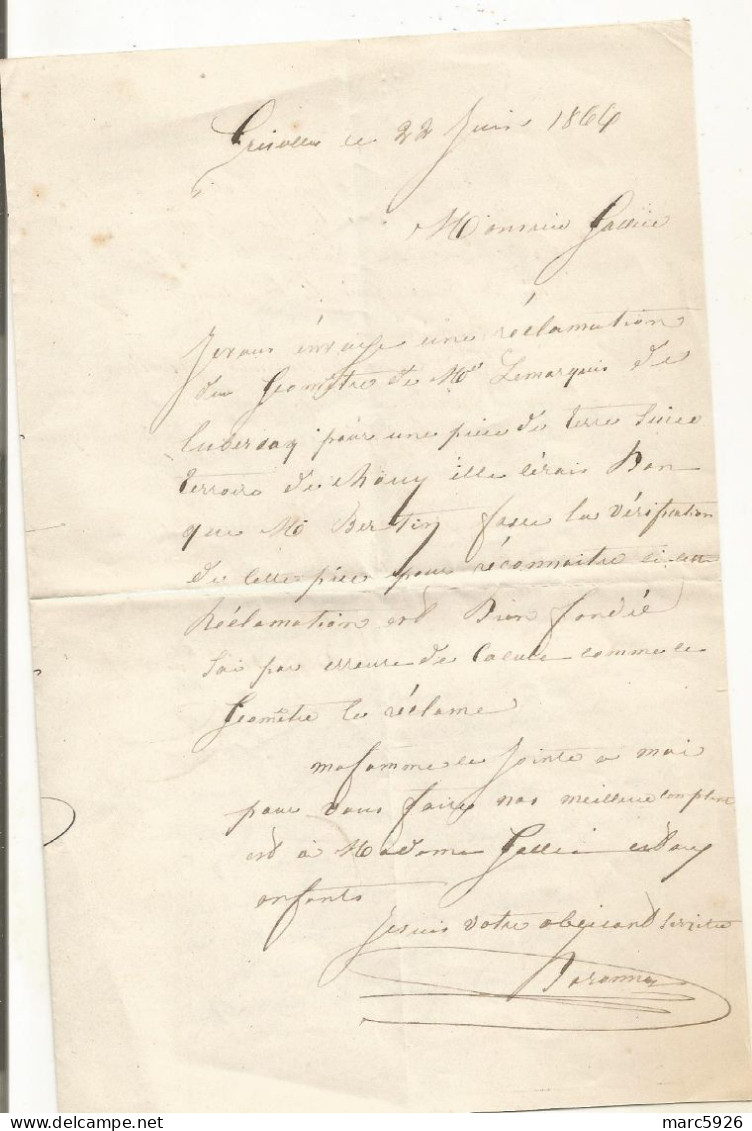 Grisolles le 22 Juin 1864
Monsieur Gallice
Jevous énvoye une réclamation
du Geomêtre de Mr Lemarquis de
Lubersaq pour une pièce de terre Sise
terroire de Chouy ille Serais Bon
que Mr Bertin fasse la vérification
de Cette pièce pour réconnaitre si cette
Réclamation est Bien fondée
Soi par erreure de Calcule comme le
Geomêtre le réclame
mafamme se Jointe a moi
pour vous faire nos meilleure
est à Madame Gallice
enfants
Jesuis votre obeisant
marc5926